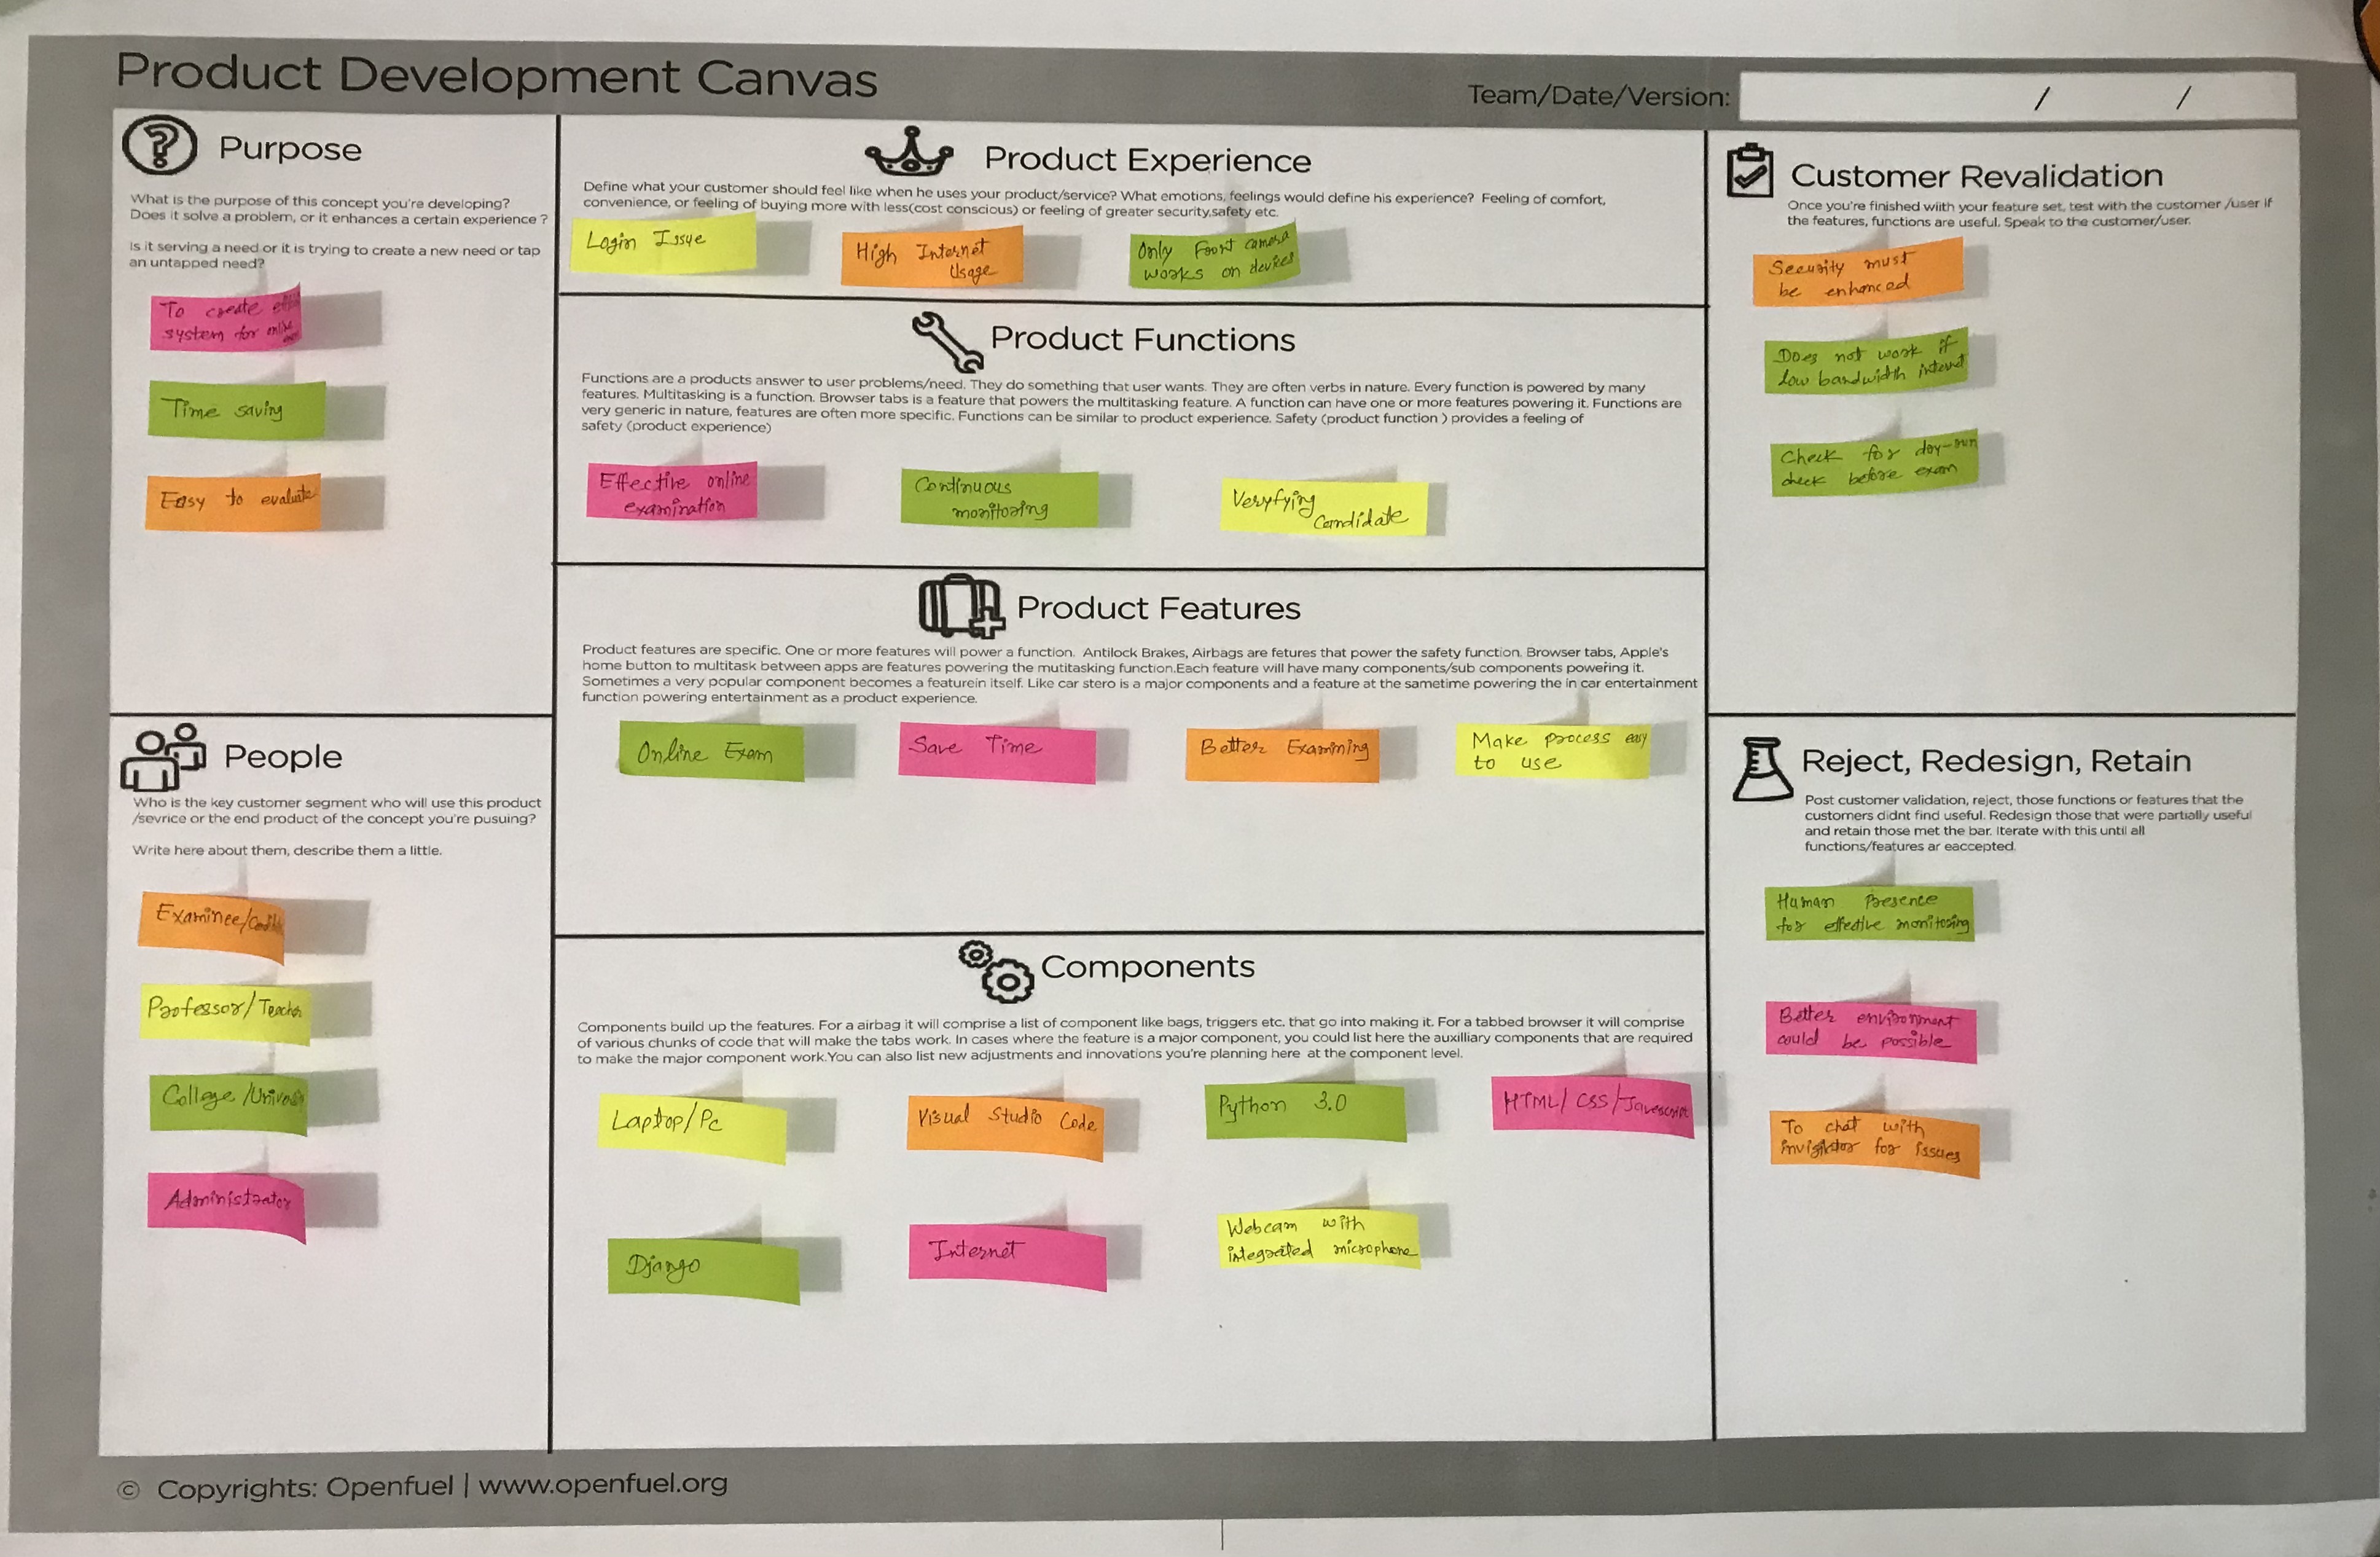 Product Development Canvas
Team/Date/Version:
/ /
Purpose
What is the purpose of this concept you're developing?
Does it solve a problem, or it enhances a certain experience ?
Is it serving a need or it is trying to create a new need or tap
an untapped need?
To create
system for
Time saving
Easy to evaluate
People
Who is the key customer segment who will use this product
/sevrice or the end product of the concept you're pusuing?
Write here about them, describe them a little.
Examinee/
Professor/Teacher
College /
Administrator
Product Experience
Define what your customer should feel like when he uses your product/service? What emotions, feelings would define his experience? Feeling of comfort,
convenience, or feeling of buying more with less(cost conscious) or feeling of greater security,safety etc.
Login Issue
High Internet
Usage
Only Front camera
works on devices
Product Functions
Functions are a products answer to user problems/need. They do something that user wants. They are often verbs in nature. Every function is powered by many
features. Multitasking is a function. Browser tabs is a feature that powers the multitasking feature. A function can have one or more features powering it. Functions are
very generic in nature, features are often more specific. Functions can be similar to product experience. Safety (product function ) provides a feeling of
safety (product experience)
Effective online
examination
Continuous
monitoring
Veryfying
Candidate
Product Features
Product features are specific. One or more features will power a function. Antilock Brakes, Airbags are fetures that power the safety function. Browser tabs, Apple's
home button to multitask between apps are features powering the mutitasking function.Each feature will have many components/sub components powering it.
Sometimes a very popular component becomes a featurein itself. Like car stero is a major components and a feature at the sametime powering the in car entertainment
function powering entertainment as a product experience.
Online Exam
Save Time
Better Examining
Make process easy
to use
Components
Components build up the features. For a airbag it will comprise a list of component like bags, triggers etc. that go into making it. For a tabbed browser it will comprise
of various chunks of code that will make the tabs work. In cases where the feature is a major component, you could list here the auxilliary components that are required
to make the major component work.You can also list new adjustments and innovations you're planning here at the component level.
Laptop/Pc
Visual Studio Code
Python 3.0
HTML/CSS/Javascript
Django
Internet
Webcam with
integrated microphone
Customer Revalidation
Once you're finished wiith your feature set, test with the customer /user if
the features, functions are useful. Speak to the customer/user.
Security must
be enhanced
Does not work if
low bandwidth internet
Check for dry-run
check before exam
Reject, Redesign, Retain
Post customer validation, reject, those functions or features that the
customers didnt find useful. Redesign those that were partially useful
and retain those met the bar. Iterate with this until all
functions/features ar eaccepted.
Human Presence
for effective monitoring
Better environment
could be possible
To chat with
for issues
© Copyrights: Openfuel | www.openfuel.org